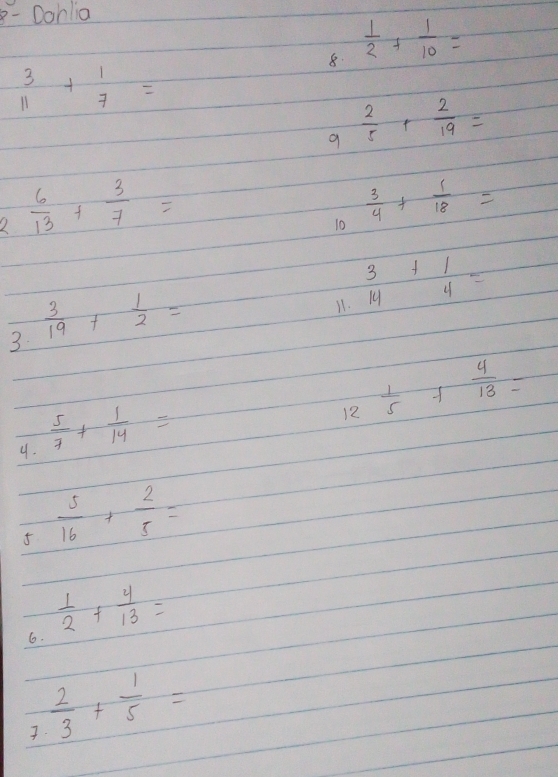 8- Dahlia
3/11 + 1/7 =
2 6/13 + 3/7 =
3. 3/19 + 1/2 =
4. 5/7 + 1/14 =
5 5/16 + 2/5 =
6. 1/2 + 4/13 =
7. 2/3 + 1/5 =
8. 1/2 + 1/10 =
9 2/5 + 2/19 =
10 3/4 + 1/18 =
11. 3/14 + 1/4 =
12 1/5 + 4/13 =